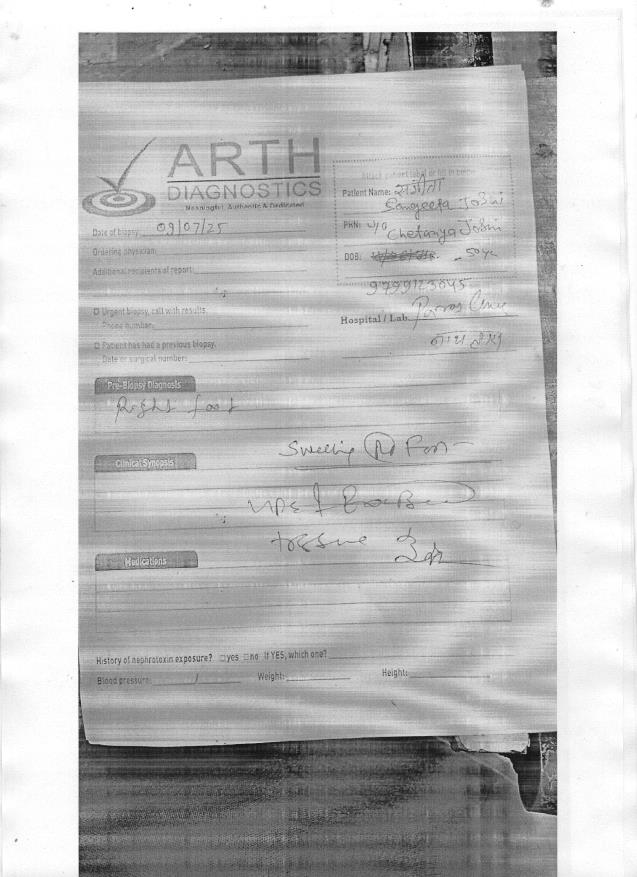 ARTH
DIAGNOSTICS
Meaningful, Authentic & Dedicated
Attach patient label or fill in below
Patient Name: संगीता
Sangeeta Joshi
PRN: W/o Chetanya Joshi
DOB: 50 yr
9799123045
Date of biopsy: 09/07/25
Ordering physician:
Additional recipients of report:
Urgent biopsy, call with results.
Phone number:
Hospital / Lab. Paras
Patient has had a previous biopsy.
Date or surgical number:
Pre-Biopsy Diagnosis
Right foot
Swelling Rt Foot
Clinical Synopsis
tissue
Medications
History of nephrotoxin exposure? □yes □no If YES, which one?
Blood pressure: / Weight: Height: